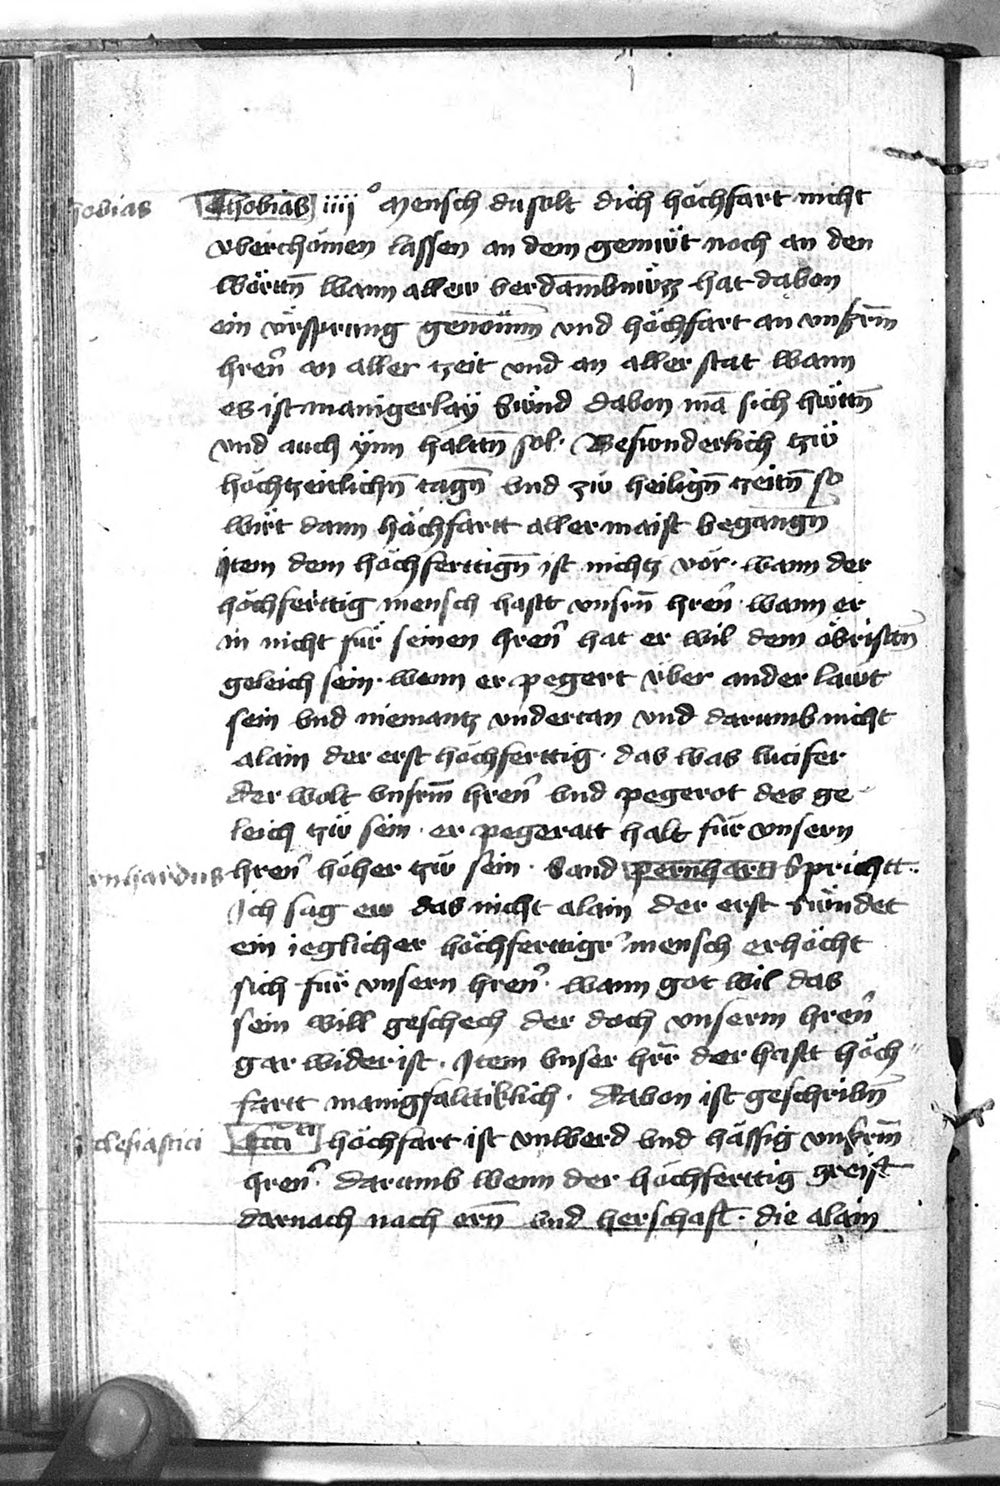 hobias
Thobias iiijº Mensch du solt dich höchfart nicht
vberchömen lassen an dem gemüt noch an den
wörttn̄ wann aller verdambnüzz hat dabon
ein vrsprung genöum̄ vnd höchfart an vnserm̄
hren̄ an aller tzeit vnd an aller stat wann
es ist manigerlaÿ sünd dabon mā sich hüttn̄
vnd auch ÿnn halttn̄ sol · Besunderlich tzü
höchtzeitlichn̄ tagn̄ vnd zü heilign̄ tzeitn̄ so
wirt dann höchfartt allermaist begangn̄
Item dem höchferttign̄ ist nichtz vör · wann der
höchferttig mensch hasst vnsrn̄ hren̄ · wann er
in nicht für seinen hren̄ hat er wil dem öbristan̄
geleich sein · wenn er pegert vber ander lawt
sein vnd niemantz vndertan vnd darumb nicht
alain der erst höchferttig · das was lucifer
der wolt vnsrm̄ hren̄ vnd pegerot des ge-
leich tzü sein · er pegeratt halt für vnsern
rnhardus
hren̄ höher tzü sein · Sand pernhard Sprichtt ·
Ich sag ew das nicht alain der erst sündet
ein ieglicher höchferttigr mensch erhöcht
sich für vnsern hren̄ · wann got wil das
sein will geschech der doch vnserm hren̄
gar wider ist · Item vnser hrr̄ der hasst höch=
fartt manigfalttiklich · Dabon ist geschribn̄
cclesiastici
Ecciᶜⁱ höchfart ist vnwerd vnd hässig vnserm̄
hren̄ · darumb wenn der höchferttig greift
darnach nach ern̄ vnd herschaft · die alain